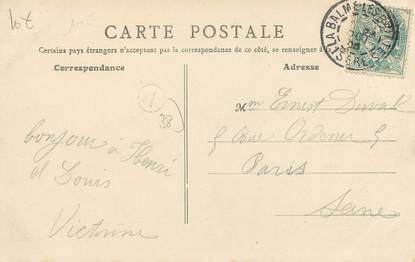 10€
CARTE POSTALE
Certains pays étrangers n'acceptant pas la correspondance de ce côté, se renseigner à la
Correspondance
Adresse
LA BALME-LES-GROTTES
ISÈRE
1
38
Mm Ernest Duval
5 Rue Ordener 5
Paris
Seine
bonjour à Henri
et Louis
Victorine